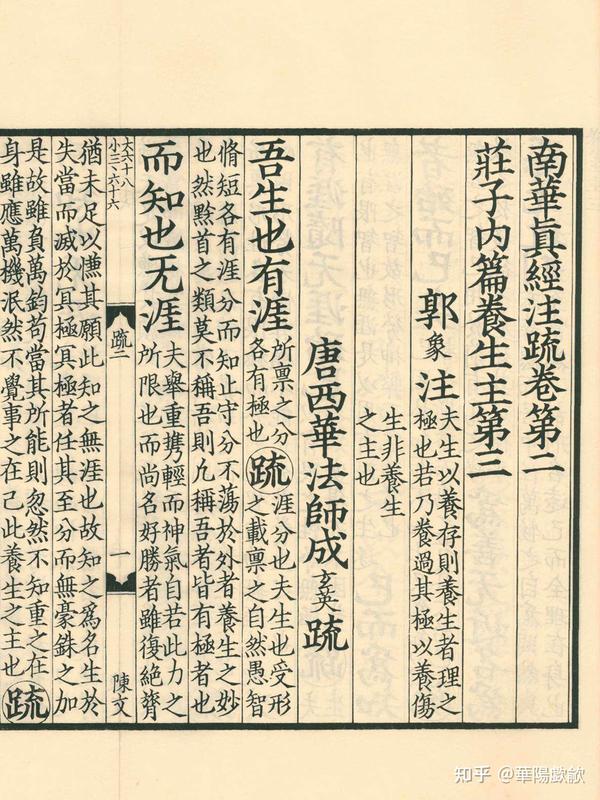 南華眞經注疏卷第二
莊子內篇養生主第三
郭象注 夫生以養存則養生者理之
極也若乃養過其極以養傷
生非養生
之主也
唐西華法師成玄英疏
吾生也有涯 所禀之分
各有極也 疏 涯分也夫生也受形
之載禀之自然愚智
脩短各有涯分而知止守分不蕩於外者養生之妙
也然黔首之類莫不稱吾則凡稱吾者皆有極者也
而知也无涯 夫舉重携輕而神氣自若此力之
所限也而尚名好勝者雖復絶膂
大六十八
小三六十六
疏二 一 陳文
猶未足以慊其願此知之無涯也故知之爲名生於
失當而滅於冥極冥極者任其至分而無豪銖之加
是故雖負萬鈞苟當其所能則忽然不知重之在
身雖應萬機泯然不覺事之在己此養生之主也 疏
知乎 @華陽歔歆